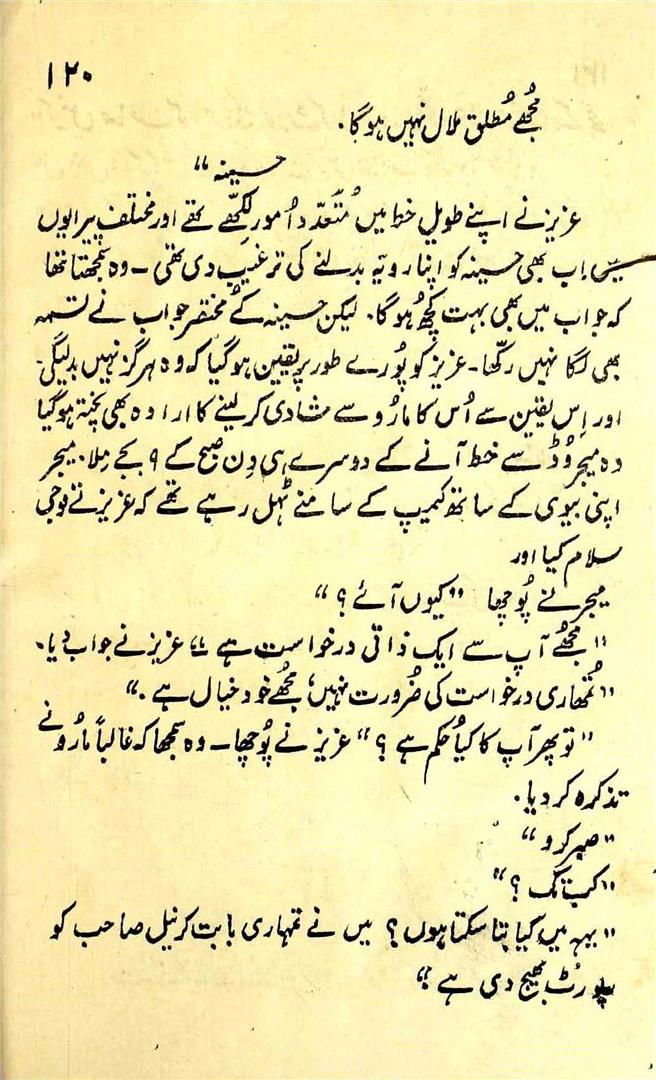 ۱۲۰
مجُھے مُطلق ملال نہیں ہوگا۔
حسینہ “
عزیز نے اپنے طویل خط میں مُتعَدّد اُمور لکھّے تھے اور مختلف پیرایوں
میں اب بھی حسینہ کو اپنا رویّہ بدلنے کی ترغیب دی تھی ۔ وہ سمجھتا تھا
کہ جواب میں بھی بہت کچُھ ہوگا۔ لیکن حسینہ کے مختصر جواب نے تسمہ
بھی لگا نہیں رکھّا ۔ عزیز کو پُورے طور پر یقین ہوگیا کہ وہ ہرگز نہیں بدلیگی۔
اور اِس یقین سے اُس کا مارُو سے شادی کر لینے کا ارادہ بھی پختہ ہوگیا
وہ میجر وُڈ سے خط آنے کے دوسرے ہی دِن صبح کے ۹ بجے مِلا۔ میجر
اپنی بیوی کے ساتھ کیمپ کے سامنے ٹہل رہے تھے کہ عزیز نے فوجی
سلام کیا اور
میجر نے پُوچھا ”کیوں آئے ؟ “
”مجُھے آپ سے ایک ذاتی درخواست ہے “ عزیز نے جواب دیا۔
”تُمھاری درخواست کی ضُرورت نہیں، مجُھے خود خیال ہے ۔“
”تو پھر آپ کا کیا حُکم ہے ؟ “ عزیز نے پُوچھا ۔ وہ سمجھا کہ غالباً مارُو نے
تذکرہ کر دیا۔
”صبر کرو “
”کب تک ؟ “
”یہہ میں کیا بتا سکتا ہوں ؟ میں نے تمہاری بابت کرنیل صاحب کو
رپُٹ بھیج دی ہے “